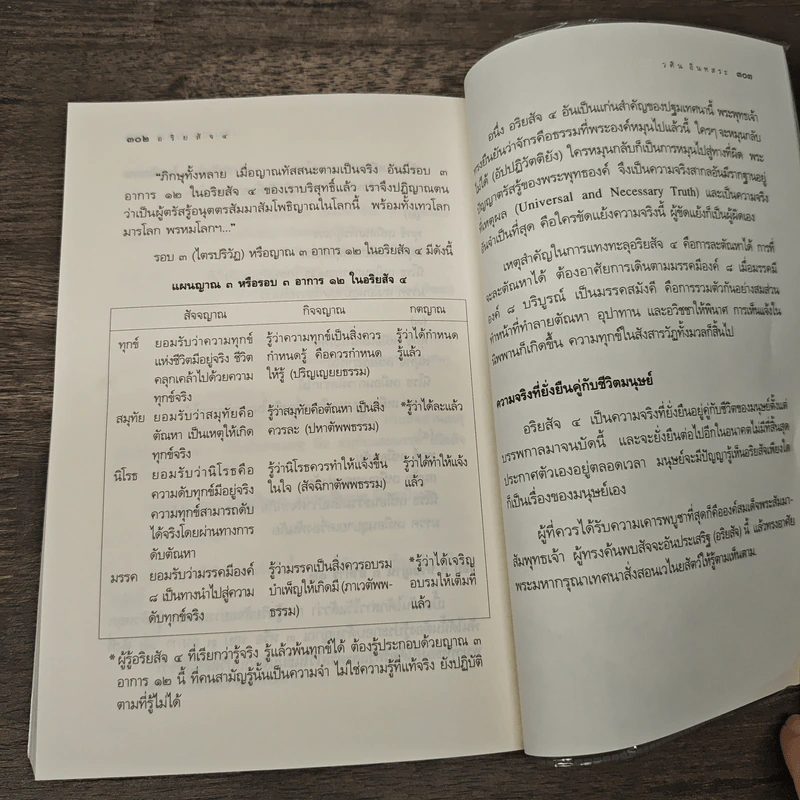 ๓๐๒ อ ริ ย สั จ ๔
"ภิกษุทั้งหลาย เมื่อญาณทัสสนะตามเป็นจริง อันมีรอบ ๓
อาการ ๑๒ ในอริยสัจ ๔ ของเราบริสุทธิ์แล้ว เราจึงปฏิญาณตน
ว่าเป็นผู้ตรัสรู้อนุตตรสัมมาสัมโพธิญาณในโลกนี้ พร้อมทั้งเทวโลก
มารโลก พรหมโลกฯ..."
รอบ ๓ (ไตรปริวัฏ) หรือญาณ ๓ อาการ ๑๒ ในอริยสัจ ๔ มีดังนี้
แผนญาณ ๓ หรือรอบ ๓ อาการ ๑๒ ในอริยสัจ ๔
สัจจญาณ กิจจญาณ กตญาณ
ทุกข์ ยอมรับว่าความทุกข์ รู้ว่าความทุกข์เป็นสิ่งควร รู้ว่าได้กำหนด
แห่งชีวิตมีอยู่จริง ชีวิต กำหนดรู้ คือควรกำหนด รู้แล้ว
คลุกเคล้าไปด้วยความ ให้รู้ (ปริญเญยยธรรม)
ทุกข์จริง
สมุทัย ยอมรับว่าสมุทัยคือ รู้ว่าสมุทัยคือตัณหา เป็นสิ่ง *รู้ว่าได้ละแล้ว
ตัณหา เป็นเหตุให้เกิด ควรละ (ปหาตัพพธรรม)
ทุกข์จริง
นิโรธ ยอมรับว่านิโรธคือ รู้ว่านิโรธควรทำให้แจ้งขึ้น รู้ว่าได้ทำให้แจ้ง
ความดับทุกข์มีอยู่จริง ในใจ (สัจฉิกาตัพพธรรม) แล้ว
ความทุกข์สามารถดับ
ได้จริงโดยผ่านทางการ
ดับตัณหา
มรรค ยอมรับว่ามรรคมีองค์ รู้ว่ามรรคเป็นสิ่งควรอบรม *รู้ว่าได้เจริญ
๘ เป็นทางนำไปสู่ความ บำเพ็ญให้เกิดมี (ภาเวตัพพ- อบรมให้เต็มที่
ดับทุกข์จริง ธรรม) แล้ว
* ผู้รู้อริยสัจ ๔ ที่เรียกว่ารู้จริง รู้แล้วพ้นทุกข์ได้ ต้องรู้ประกอบด้วยญาณ ๓
อาการ ๑๒ นี้ ที่คนสามัญรู้นั้นเป็นความจำ ไม่ใช่ความรู้ที่แท้จริง ยังปฏิบัติ
ตามที่รู้ไม่ได้
ว ศิ น อิ น ท ส ร ะ ๓๐๓
อนึ่ง อริยสัจ ๔ อันเป็นแก่นสำคัญของปฐมเทศนานี้ พระพุทธเจ้า
ทรงยืนยันว่าจักรคือธรรมที่พระองค์หมุนไปแล้วนี้ ใครๆ จะหมุนกลับ
ไม่ได้ (อัปปฏิวัตติยัง) ใครหมุนกลับก็เป็นการหมุนไปสู่ทางที่ผิด พระ
ปัญญาตรัสรู้ของพระพุทธองค์ จึงเป็นความจริงสากลอันมีรากฐานอยู่
ที่เหตุผล (Universal and Necessary Truth) และเป็นความจริง
อันจำเป็นที่สุด คือใครขัดแย้งความจริงนี้ ผู้ขัดแย้งก็เป็นผู้ผิดเอง
เหตุสำคัญในการแทงทะลุอริยสัจ ๔ คือการละตัณหาได้ การที่
จะละตัณหาได้ ต้องอาศัยการเดินตามมรรคมีองค์ ๘ เมื่อมรรคมี
องค์ ๘ บริบูรณ์ เป็นมรรคสมังคี คือการรวมตัวกันอย่างสมส่วน
ทำหน้าที่ทำลายตัณหา อุปาทาน และอวิชชาให้พินาศ การเห็นแจ้งใน
นิพพานก็เกิดขึ้น ความทุกข์ในสังสารวัฏทั้งมวลก็สิ้นไป
ความจริงที่ยั่งยืนคู่กับชีวิตมนุษย์
อริยสัจ ๔ เป็นความจริงที่ยั่งยืนอยู่คู่กับชีวิตของมนุษย์ตั้งแต่
บรรพกาลมาจนบัดนี้ และจะยั่งยืนต่อไปอีกในอนาคตไม่มีที่สิ้นสุด
ประกาศตัวเองอยู่ตลอดเวลา มนุษย์จะมีปัญญารู้เห็นอริยสัจเพียงใด
ก็เป็นเรื่องของมนุษย์เอง
ผู้ที่ควรได้รับความเคารพบูชาที่สุดก็คือองค์สมเด็จพระสัมมา-
สัมพุทธเจ้า ผู้ทรงค้นพบสัจจะอันประเสริฐ (อริยสัจ) นี้ แล้วทรงอาศัย
พระมหากรุณาเทศนาสั่งสอนเวไนยสัตว์ให้รู้ตามเห็นตาม